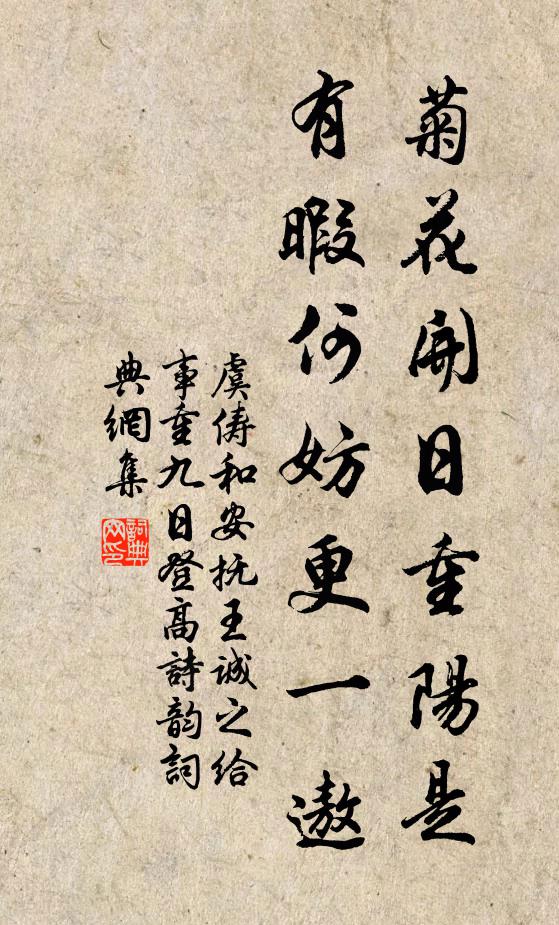 菊花開日重陽是
有暇何妨更一遨
虞儔和安抚王诚之给
事重九日登高詩韵詞
典網集
詞典网印